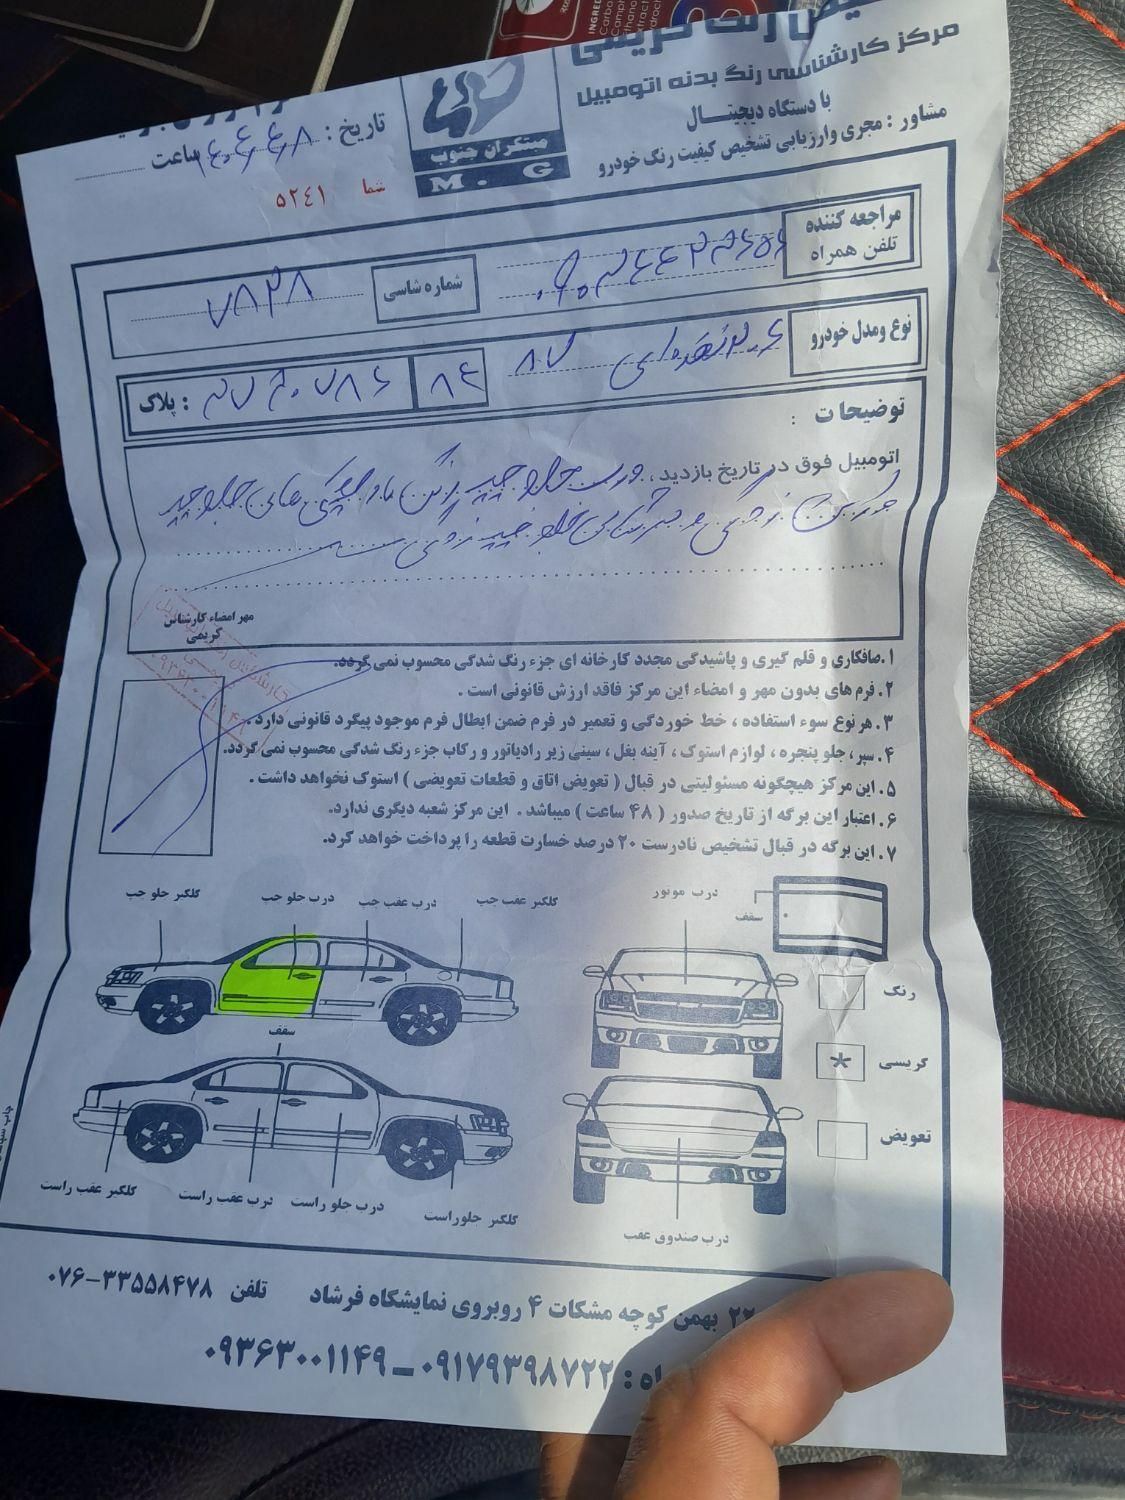 مرکز کارشناسی رنگ بدنه اتومبیل
با دستگاه دیجیتال
مشاور : مجری وارزیابی تشخیص کیفیت رنگ خودرو
مبتکران جنوب
M. G
تاریخ :
ساعت
شما ۵۲۴۱
مراجعه کننده
تلفن همراه
شماره شاسی
۷۸۳۸
نوع ومدل خودرو
۲۰۶ نقره ای ۸۷
۸۴
پلاک :
توضیحات :
اتومبیل فوق در تاریخ بازدید ، درب جلو چپ
مهر امضاء کارشناس
کریمی
۱.صافکاری و قلم گیری و پاشیدگی مجدد کارخانه ای جزء رنگ شدگی محسوب نمی گردد.
۲.فرم های بدون مهر و امضاء این مرکز فاقد ارزش قانونی است .
۳.هر نوع سوء استفاده ، خط خوردگی و تعمیر در فرم ضمن ابطال فرم موجود پیگرد قانونی دارد .
۴.سپر، جلو پنجره ، لوازم استوک ، آینه بغل ، سینی زیر رادیاتور و رکاب جزء رنگ شدگی محسوب نمی گردد.
۵.این مرکز هیچگونه مسئولیتی در قبال ( تعویض اتاق و قطعات تعویضی ) استوک نخواهد داشت .
۶.اعتبار این برگه از تاریخ صدور ( ۴۸ ساعت ) میباشد . این مرکز شعبه دیگری ندارد.
۷.این برگه در قبال تشخیص نادرست ۲۰ درصد خسارت قطعه را پرداخت خواهد کرد.
گلگیر جلو چپ
درب جلو چپ
درب عقب چپ
گلگیر عقب چپ
درب موتور
سقف
رنگ
سقف
گریسی *
تعویض
گلگیر عقب راست
درب عقب راست
درب جلو راست
گلگیر جلوراست
درب صندوق عقب
۲۲ بهمن کوچه مشکات ۴ روبروی نمایشگاه فرشاد تلفن ۳۳۵۵۸۴۷۸-۰۷۶
۰۹۱۷۹۳۹۸۷۲۲ – ۰۹۳۶۳۰۰۱۱۴۹